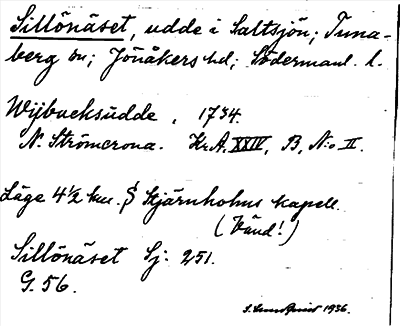 Sillönäset, udde i Saltsjön; Tuna-
berg sn; Jönåkers hd; Södermanl. l.
Wijbucksudde, 1734.
N. Strömcrona. Kr.A. XXIV, B, N:o II.
Läge 4 1/2 km. S Stjärnholms kapell.
(Vänd!)
Sillönäset Sj. 251.
G. 56.
S. Lundqvist 1936.